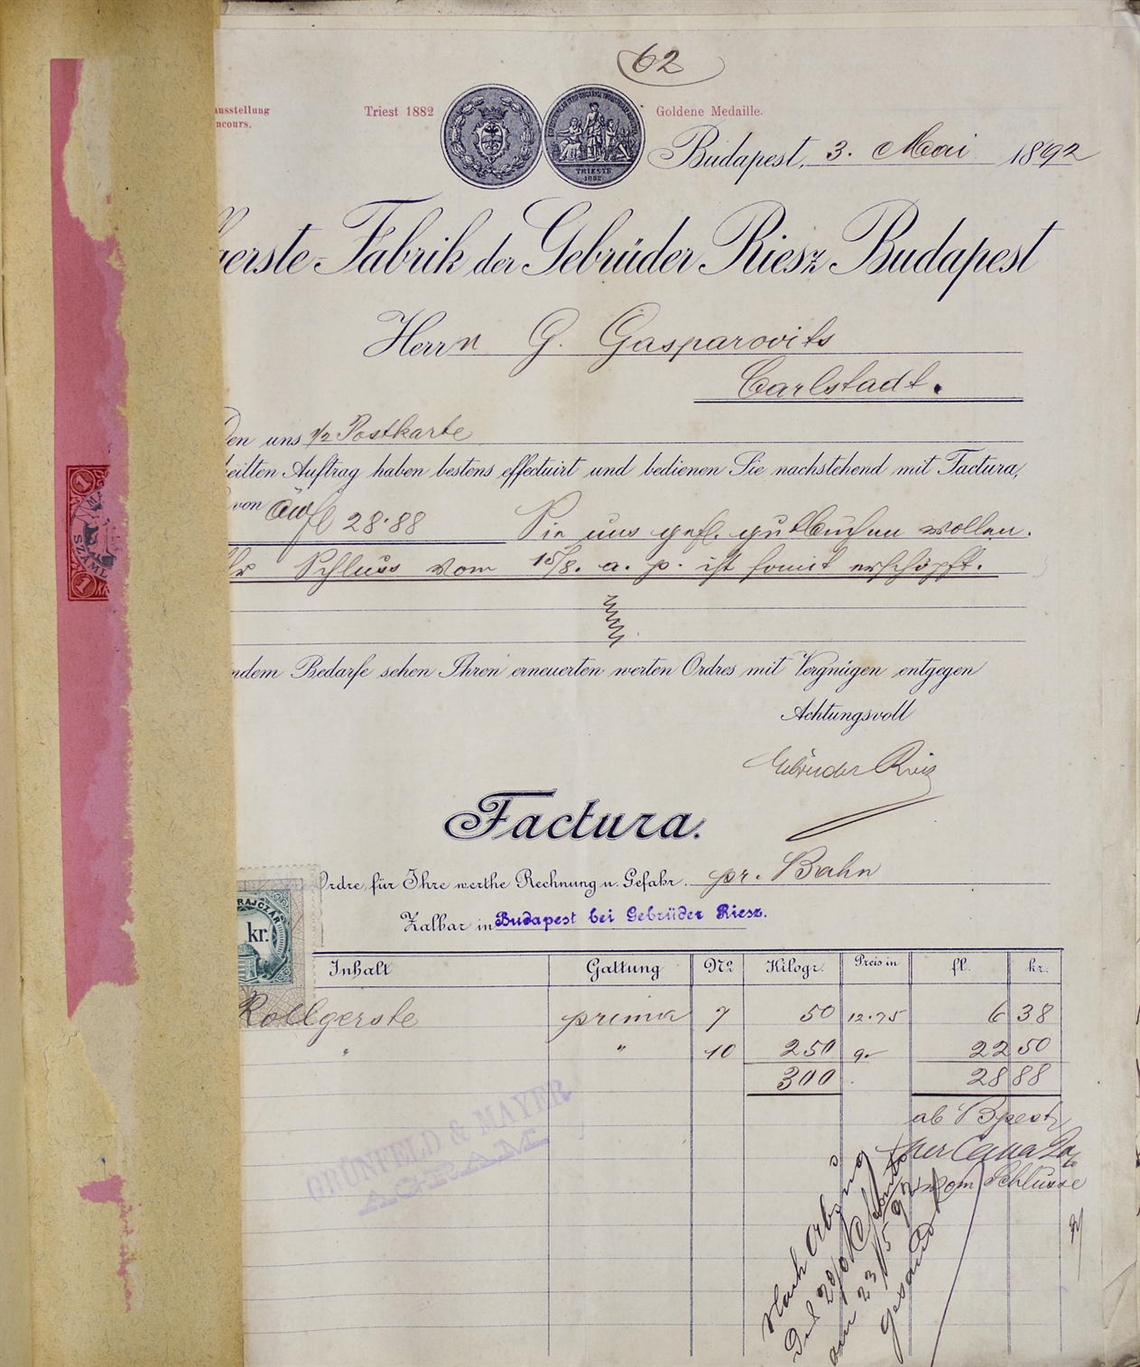 62
Triest 1882 Goldene Medaille.
TRIESTE
1882
Budapest, 3. Mai 1892
gerste-Fabrik der Gebrüder Riesz Budapest
Herrn G. Gasparovits
Carlstadt.
uns 1/2 Postkarte
eilten Auftrag haben bestens effectuirt und bedienen Sie nachstehend mit Factura,
von öwfl 28·88 Sie uns gefl. gutbuchen wollen.
Schluss vom 15/8. a. p. ist somit erschöpft.
ndem Bedarfe sehen Ihren erneuerten werten Ordres mit Vergnügen entgegen
Achtungsvoll
Gebrüder Riesz
Factura.
Ordre für Ihre werthe Rechnung u. Gefahr. pr. Bahn
Zalbar in Budapest bei Gebrüder Riesz.
kr.
Inhalt Gattung No. Kilogr. Preis in fl. kr.
Rollgerste prima 7 50 12.75 6 38
" " 10 250 9- 22 50
300 28 88
ab Bpest
vom Schlusse
GRÜNFELD & MAYER
AGRAM
Nach Abzug
am 23/5 92
gesandt